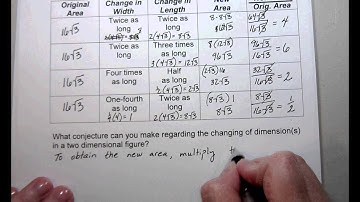 Original Area Change in Width Change in Length New Area Orig. Area
16√3 Twice as long Twice as long 2(4√3) = 8√3 8·8√3 64√3 / 16√3 = 4
16√3 Twice as long Three times as long 3(4√3) = 12√3 8(12√3) 96√3 96√3 / 16√3 = 6
16√3 Four times as long Half as long ½(4√3) = 2√3 32√3 32√3 / 16√3 = 2
16√3 One-fourth as long ¼(4) = 1 Twice as long 2(4√3) = 8√3 (8√3)1 8√3 8√3 / 16√3 = 1/2
What conjecture can you make regarding the changing of dimension(s)
in a two dimensional figure?
To obtain the new area, multiply